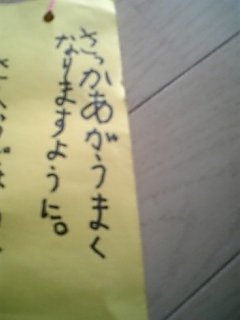 さっかあがうまく
なりますように。